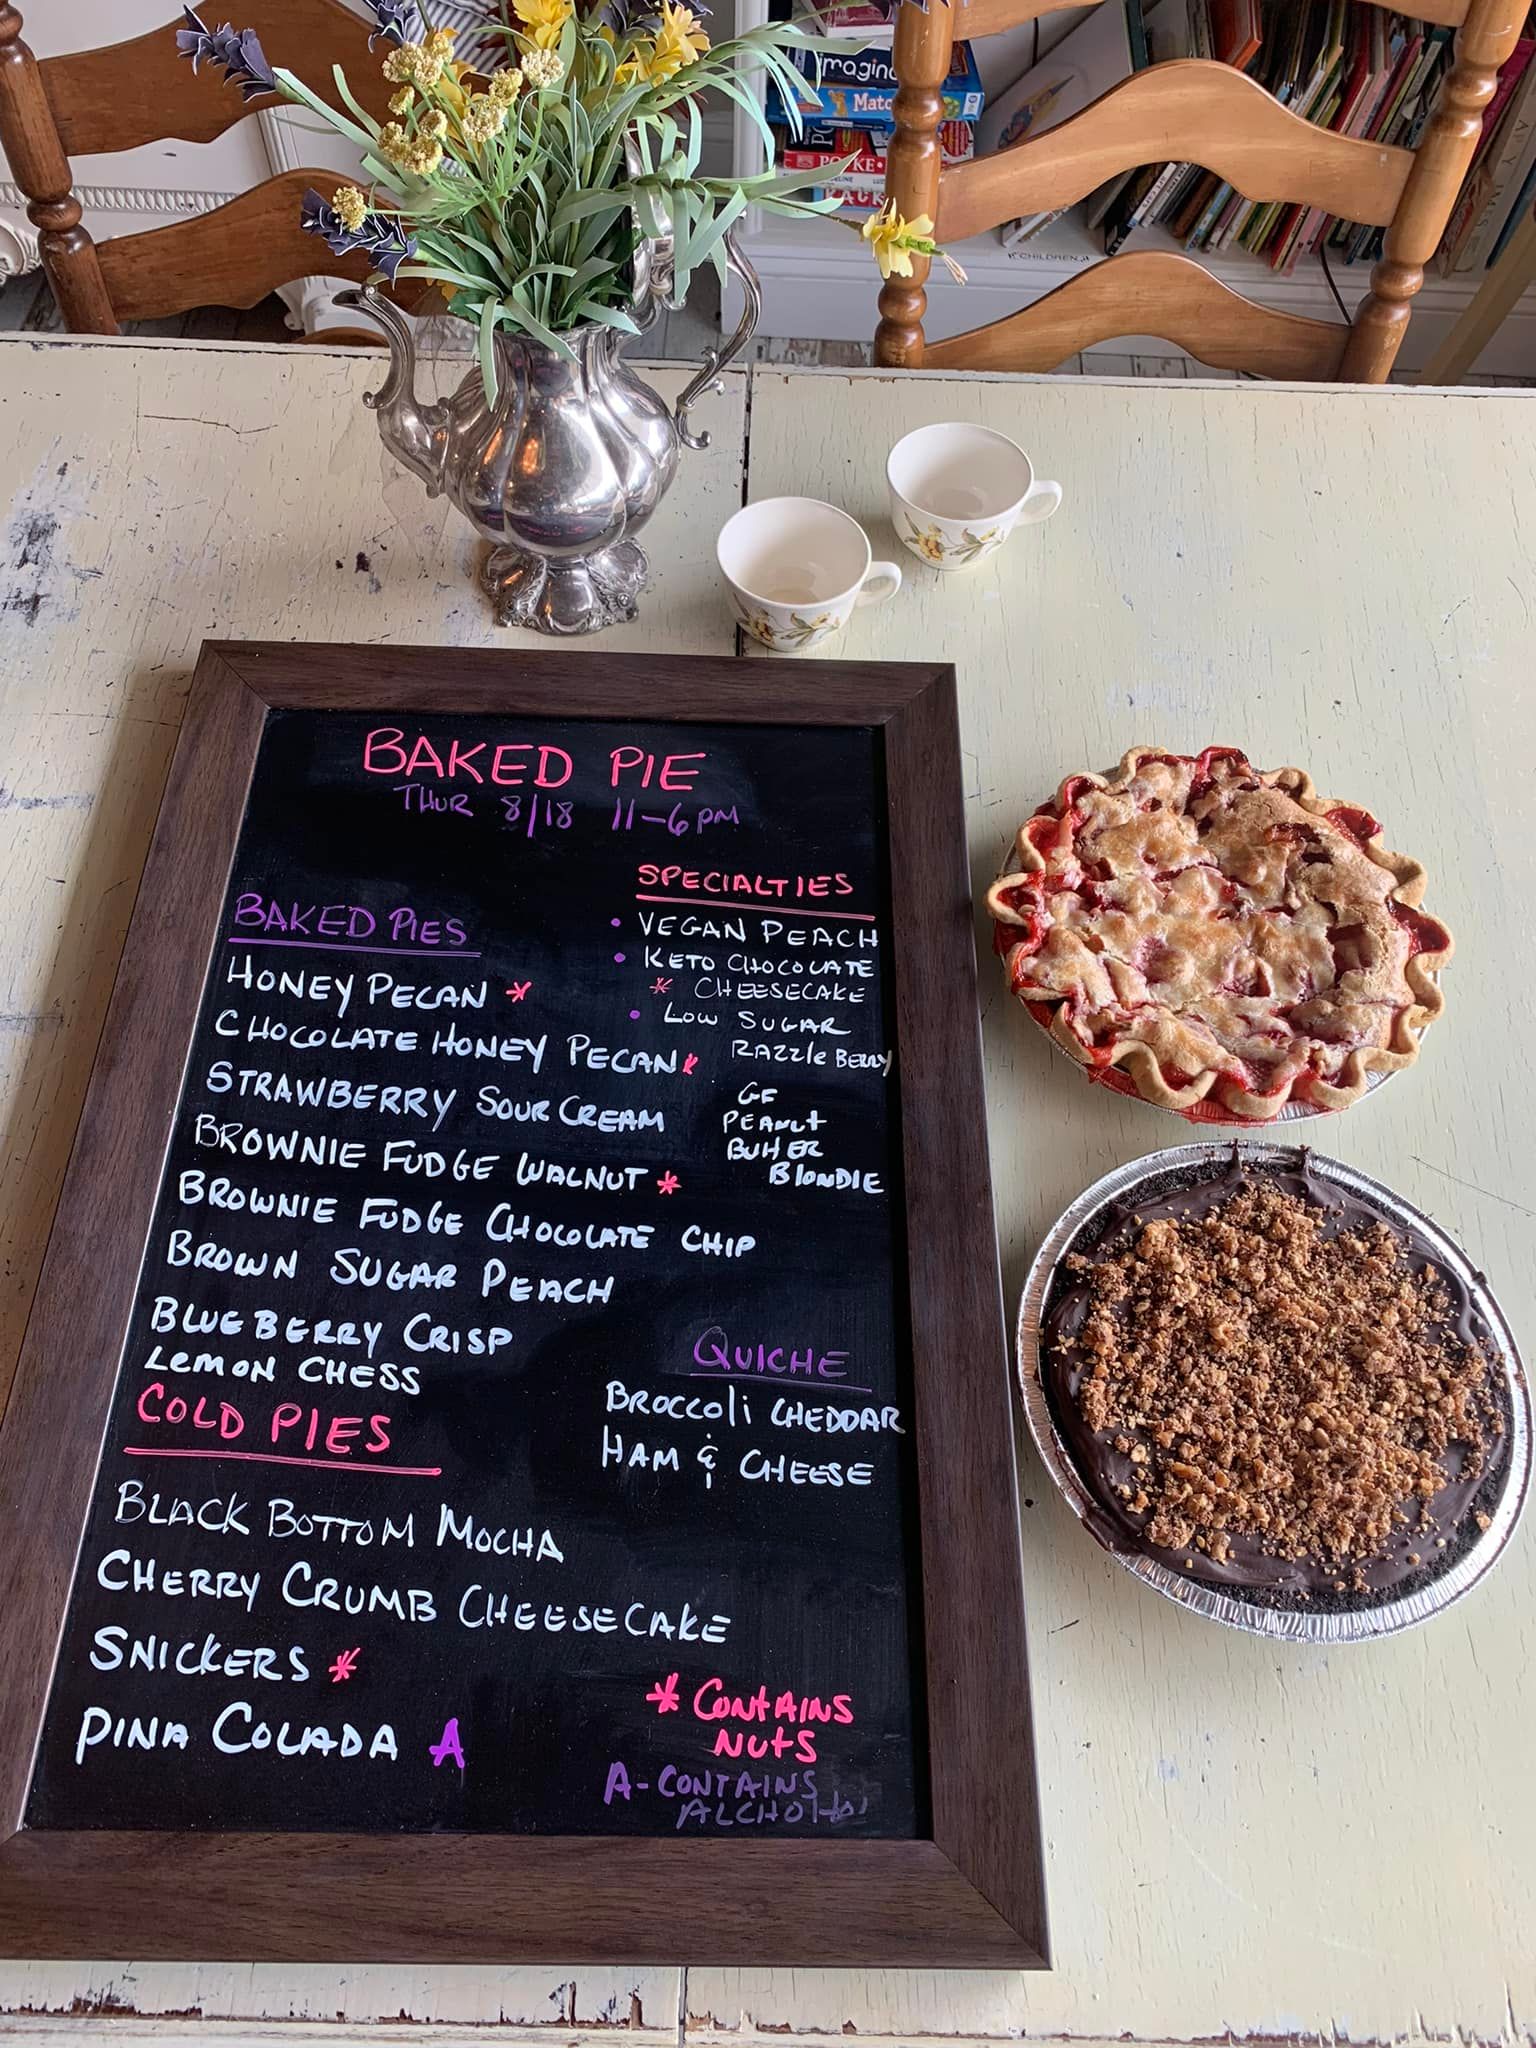 imagine
Matc
POKE
CHILDREN
BAKED PIE
THUR 8/18 11-6PM
BAKED PIES
HONEY PECAN *
CHOCOLATE HONEY PECAN *
STRAWBERRY SOUR CREAM
BROWNIE FUDGE WALNUT *
BROWNIE FUDGE CHOCOLATE CHIP
BROWN SUGAR PEACH
BLUEBERRY CRISP
LEMON CHESS
COLD PIES
BLACK BOTTOM MOCHA
CHERRY CRUMB CHEESECAKE
SNICKERS *
PINA COLADA A
SPECIALTIES
• VEGAN PEACH
• KETO CHOCOLATE
* CHEESECAKE
• LOW SUGAR
RAZZLEBERRY
GF
PEANUT
BUTTER
BLONDIE
QUICHE
BROCCOLI CHEDDAR
HAM & CHEESE
* CONTAINS
NUTS
A-CONTAINS